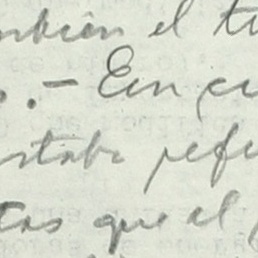 también el tr
. . — En cu
estaba refe
tas que el